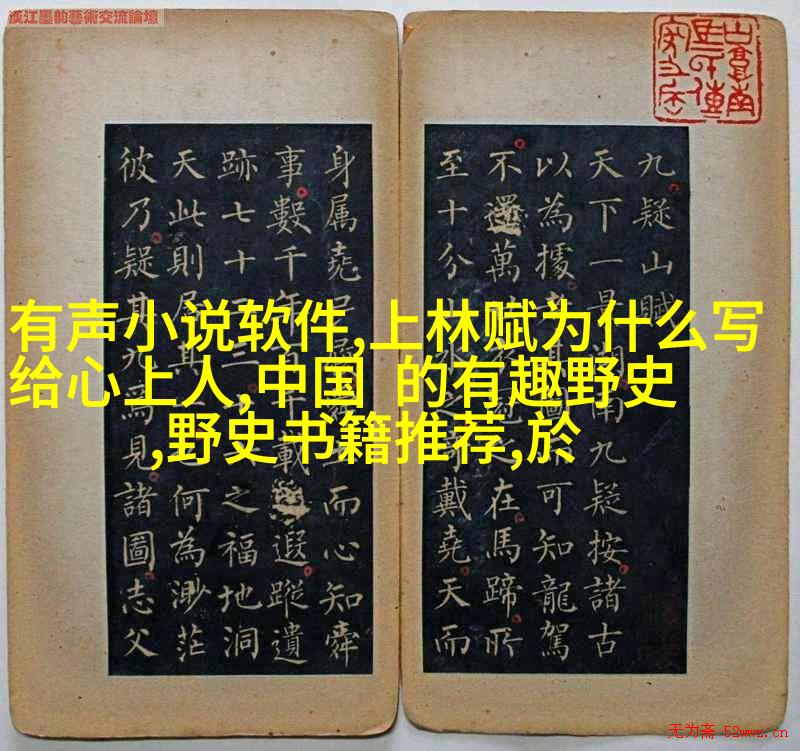 漢江墨韵藝術交流論壇
有声小说软件,上林赋为什么写
给心上人,中国 的有趣野史
,野史书籍推荐,於
九疑山賦
天下一南九疑按諸古
以為據可知龍駕
不還萬在馬蹄所
至十分之戴堯天而
身属堯而心知舜
事數千年載遐蹤遺
跡七十三之福地洞
天此則何為渺茫
彼乃疑其為見諸圖志父
无为斋 52wwz.cn